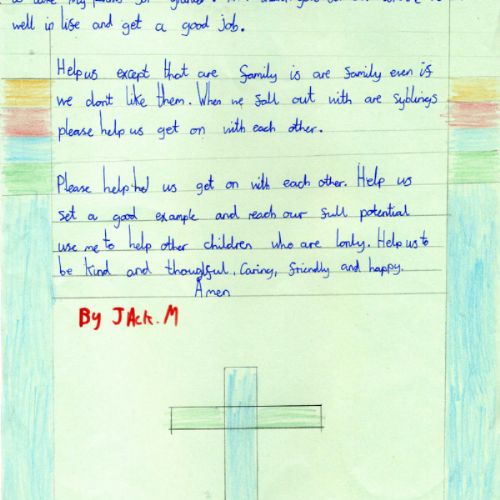 well in life and get a good job.
Help us except that are family is are family even if
we don't like them. When we fall out with are syblings
please help us get on with each other.
Please help us get on with each other. Help us
set a good example and reach our full potential
use me to help other children who are lonly. Help us to
be kind and thoughful, Caring, friendly and happy.
Amen
By JAck. M